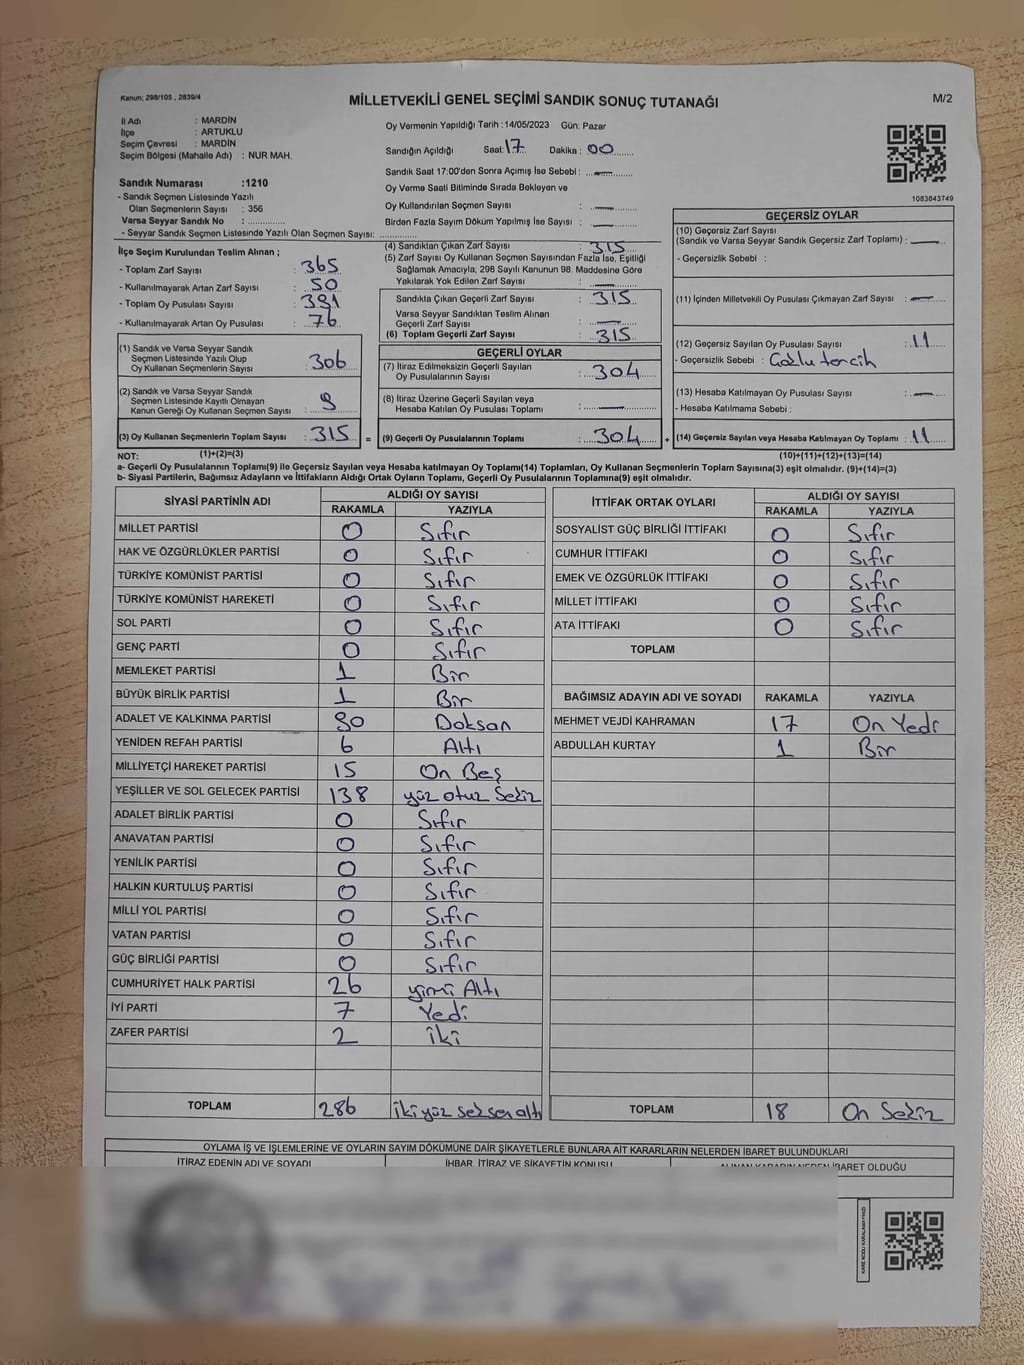 Kanun: 298/105 , 2839/4
MİLLETVEKİLİ GENEL SEÇİMİ SANDIK SONUÇ TUTANAĞI
M/2
İl Adı : MARDİN
İlçe : ARTUKLU
Seçim Çevresi : MARDİN
Seçim Bölgesi (Mahalle Adı) : NUR MAH.
Oy Vermenin Yapıldığı Tarih :14/05/2023 Gün: Pazar
Sandığın Açıldığı Saat: 17 Dakika : 00
Sandık Saat 17:00'den Sonra Açımış İse Sebebi : —
Oy Verme Saati Bitiminde Sırada Bekleyen ve
Oy Kullandırılan Seçmen Sayısı : —
Birden Fazla Sayım Döküm Yapılmış İse Sayısı : —
1083843749
Sandık Numarası :1210
- Sandık Seçmen Listesinde Yazılı
Olan Seçmenlerin Sayısı : 356
Varsa Seyyar Sandık No : ..............
- Seyyar Sandık Seçmen Listesinde Yazılı Olan Seçmen Sayısı: ..............
İlçe Seçim Kurulundan Teslim Alınan ;
- Toplam Zarf Sayısı : 365
- Kullanılmayarak Artan Zarf Sayısı : 50
- Toplam Oy Pusulası Sayısı : 391
- Kullanılmayarak Artan Oy Pusulası : 76
(1) Sandık ve Varsa Seyyar Sandık
Seçmen Listesinde Yazılı Olup
Oy Kullanan Seçmenlerin Sayısı : 306
(2) Sandık ve Varsa Seyyar Sandık
Seçmen Listesinde Kayıtlı Olmayan
Kanun Gereği Oy Kullanan Seçmen Sayısı : 9
(3) Oy Kullanan Seçmenlerin Toplam Sayısı : 315 =
(4) Sandıktan Çıkan Zarf Sayısı : 315
(5) Zarf Sayısı Oy Kullanan Seçmen Sayısından Fazla İse, Eşitliği
Sağlamak Amacıyla, 298 Sayılı Kanunun 98. Maddesine Göre
Yakılarak Yok Edilen Zarf Sayısı : —
Sandıkta Çıkan Geçerli Zarf Sayısı : 315
Varsa Seyyar Sandıktan Teslim Alınan
Geçerli Zarf Sayısı : —
(6) Toplam Geçerli Zarf Sayısı : 315
GEÇERLİ OYLAR
(7) İtiraz Edilmeksizin Geçerli Sayılan
Oy Pusulalarının Sayısı : 304
(8) İtiraz Üzerine Geçerli Sayılan veya
Hesaba Katılan Oy Pusulası Toplamı : —
(9) Geçerli Oy Pusulalarının Toplamı : 304 +
GEÇERSİZ OYLAR
(10) Geçersiz Zarf Sayısı
(Sandık ve Varsa Seyyar Sandık Geçersiz Zarf Toplamı) : —
- Geçersizlik Sebebi :
(11) İçinden Milletvekili Oy Pusulası Çıkmayan Zarf Sayısı : —
(12) Geçersiz Sayılan Oy Pusulası Sayısı : 11
- Geçersizlik Sebebi : Çoklu tercih
(13) Hesaba Katılmayan Oy Pusulası Sayısı : —
- Hesaba Katılmama Sebebi :
(14) Geçersiz Sayılan veya Hesaba Katılmayan Oy Toplamı : 11
NOT: (1)+(2)=(3) (10)+(11)+(12)+(13)=(14)
a- Geçerli Oy Pusulalarının Toplamı(9) ile Geçersiz Sayılan veya Hesaba katılmayan Oy Toplamı(14) Toplamları, Oy Kullanan Seçmenlerin Toplam Sayısına(3) eşit olmalıdır. (9)+(14)=(3)
b- Siyasi Partilerin, Bağımsız Adayların ve İttifakların Aldığı Ortak Oyların Toplamı, Geçerli Oy Pusulalarının Toplamına(9) eşit olmalıdır.
SİYASİ PARTİNİN ADI ALDIĞI OY SAYISI
RAKAMLA YAZIYLA
MİLLET PARTİSİ 0 Sıfır
HAK VE ÖZGÜRLÜKLER PARTİSİ 0 Sıfır
TÜRKİYE KOMÜNİST PARTİSİ 0 Sıfır
TÜRKİYE KOMÜNİST HAREKETİ 0 Sıfır
SOL PARTİ 0 Sıfır
GENÇ PARTİ 0 Sıfır
MEMLEKET PARTİSİ 1 Bir
BÜYÜK BİRLİK PARTİSİ 1 Bir
ADALET VE KALKINMA PARTİSİ 90 Doksan
YENİDEN REFAH PARTİSİ 6 Altı
MİLLİYETÇİ HAREKET PARTİSİ 15 On Beş
YEŞİLLER VE SOL GELECEK PARTİSİ 138 yüz otuz Sekiz
ADALET BİRLİK PARTİSİ 0 Sıfır
ANAVATAN PARTİSİ 0 Sıfır
YENİLİK PARTİSİ 0 Sıfır
HALKIN KURTULUŞ PARTİSİ 0 Sıfır
MİLLİ YOL PARTİSİ 0 Sıfır
VATAN PARTİSİ 0 Sıfır
GÜÇ BİRLİĞİ PARTİSİ 0 Sıfır
CUMHURİYET HALK PARTİSİ 26 yirmi Altı
İYİ PARTİ 7 Yedi
ZAFER PARTİSİ 2 iki
TOPLAM 286 iki yüz seksen altı
İTTİFAK ORTAK OYLARI ALDIĞI OY SAYISI
RAKAMLA YAZIYLA
SOSYALİST GÜÇ BİRLİĞİ İTTİFAKI 0 Sıfır
CUMHUR İTTİFAKI 0 Sıfır
EMEK VE ÖZGÜRLÜK İTTİFAKI 0 Sıfır
MİLLET İTTİFAKI 0 Sıfır
ATA İTTİFAKI 0 Sıfır
TOPLAM
BAĞIMSIZ ADAYIN ADI VE SOYADI RAKAMLA YAZIYLA
MEHMET VEJDİ KAHRAMAN 17 On Yedi
ABDULLAH KURTAY 1 Bir
TOPLAM 18 On Sekiz
OYLAMA İŞ VE İŞLEMLERİNE VE OYLARIN SAYIM DÖKÜMÜNE DAİR ŞİKAYETLERLE BUNLARA AİT KARARLARIN NELERDEN İBARET BULUNDUKLARI
İTİRAZ EDENİN ADI VE SOYADI İHBAR, İTİRAZ VE ŞİKAYETİN KONUSU ALINAN KARARIN NEDEN İBARET OLDUĞU